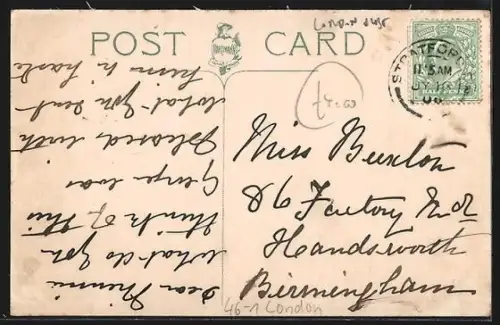 POST CARD
London East
STRATFORD
11.15AM
JY 18
06
HALFPENNY
£4.00
Miss Buxton
86 Factory Rd
Handsworth
Birmingham
46-1 London
Dear Minnie
what do you
think of this
George was
pleased with
what you sent
him